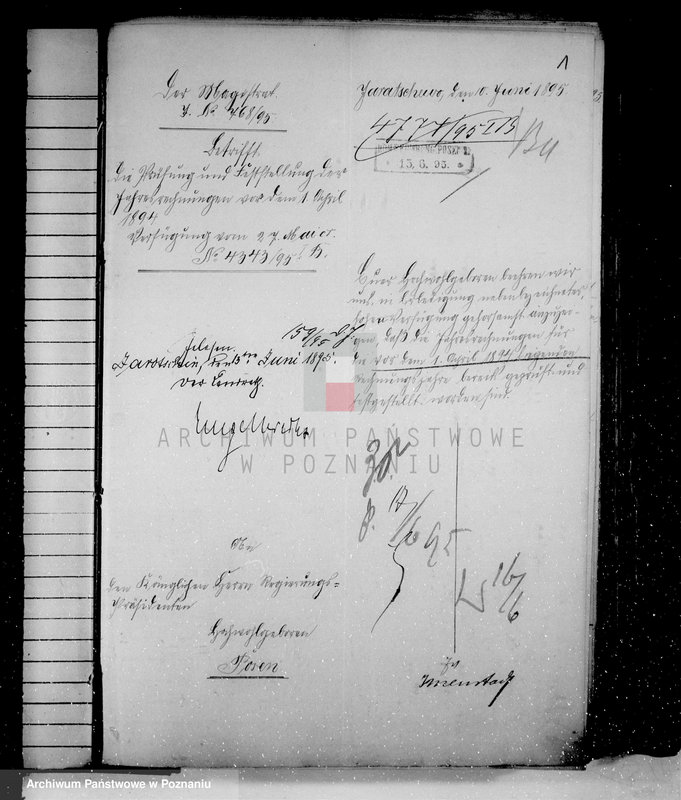 1
Der Magistrat.
J. No 768/95
Betrifft
die Prüfung und Feststellung der
Jahresrechnungen vor dem 1. April
1894
Verfügung vom 27. Mai cr.
No 4343/95 I B.
Jaratschewo, den 10. Juni 1895
4774/95 I B
POSEN
13.6.95.
Euer Hochwohlgeboren beehren wir
uns in Erledigung nebenbezeichneter
hohen Verfügung gehorsamst anzuzei-
gen, daß die Jahresrechnungen für
die vor dem 1. April 1894 liegenden
Rechnungsjahre bereits geprüft und
festgestellt worden sind.
Gelesen.
Jarotschin, den Juni 1895.
Der Landrath
Engelbrecht
ARCHIWUM PAŃSTWOWE
W POZNANIU
An
den Königlichen Herrn Regierungs-
Präsidenten
Hochwohlgeboren
Posen
17/6 95
16/6
Archiwum Państwowe w Poznaniu